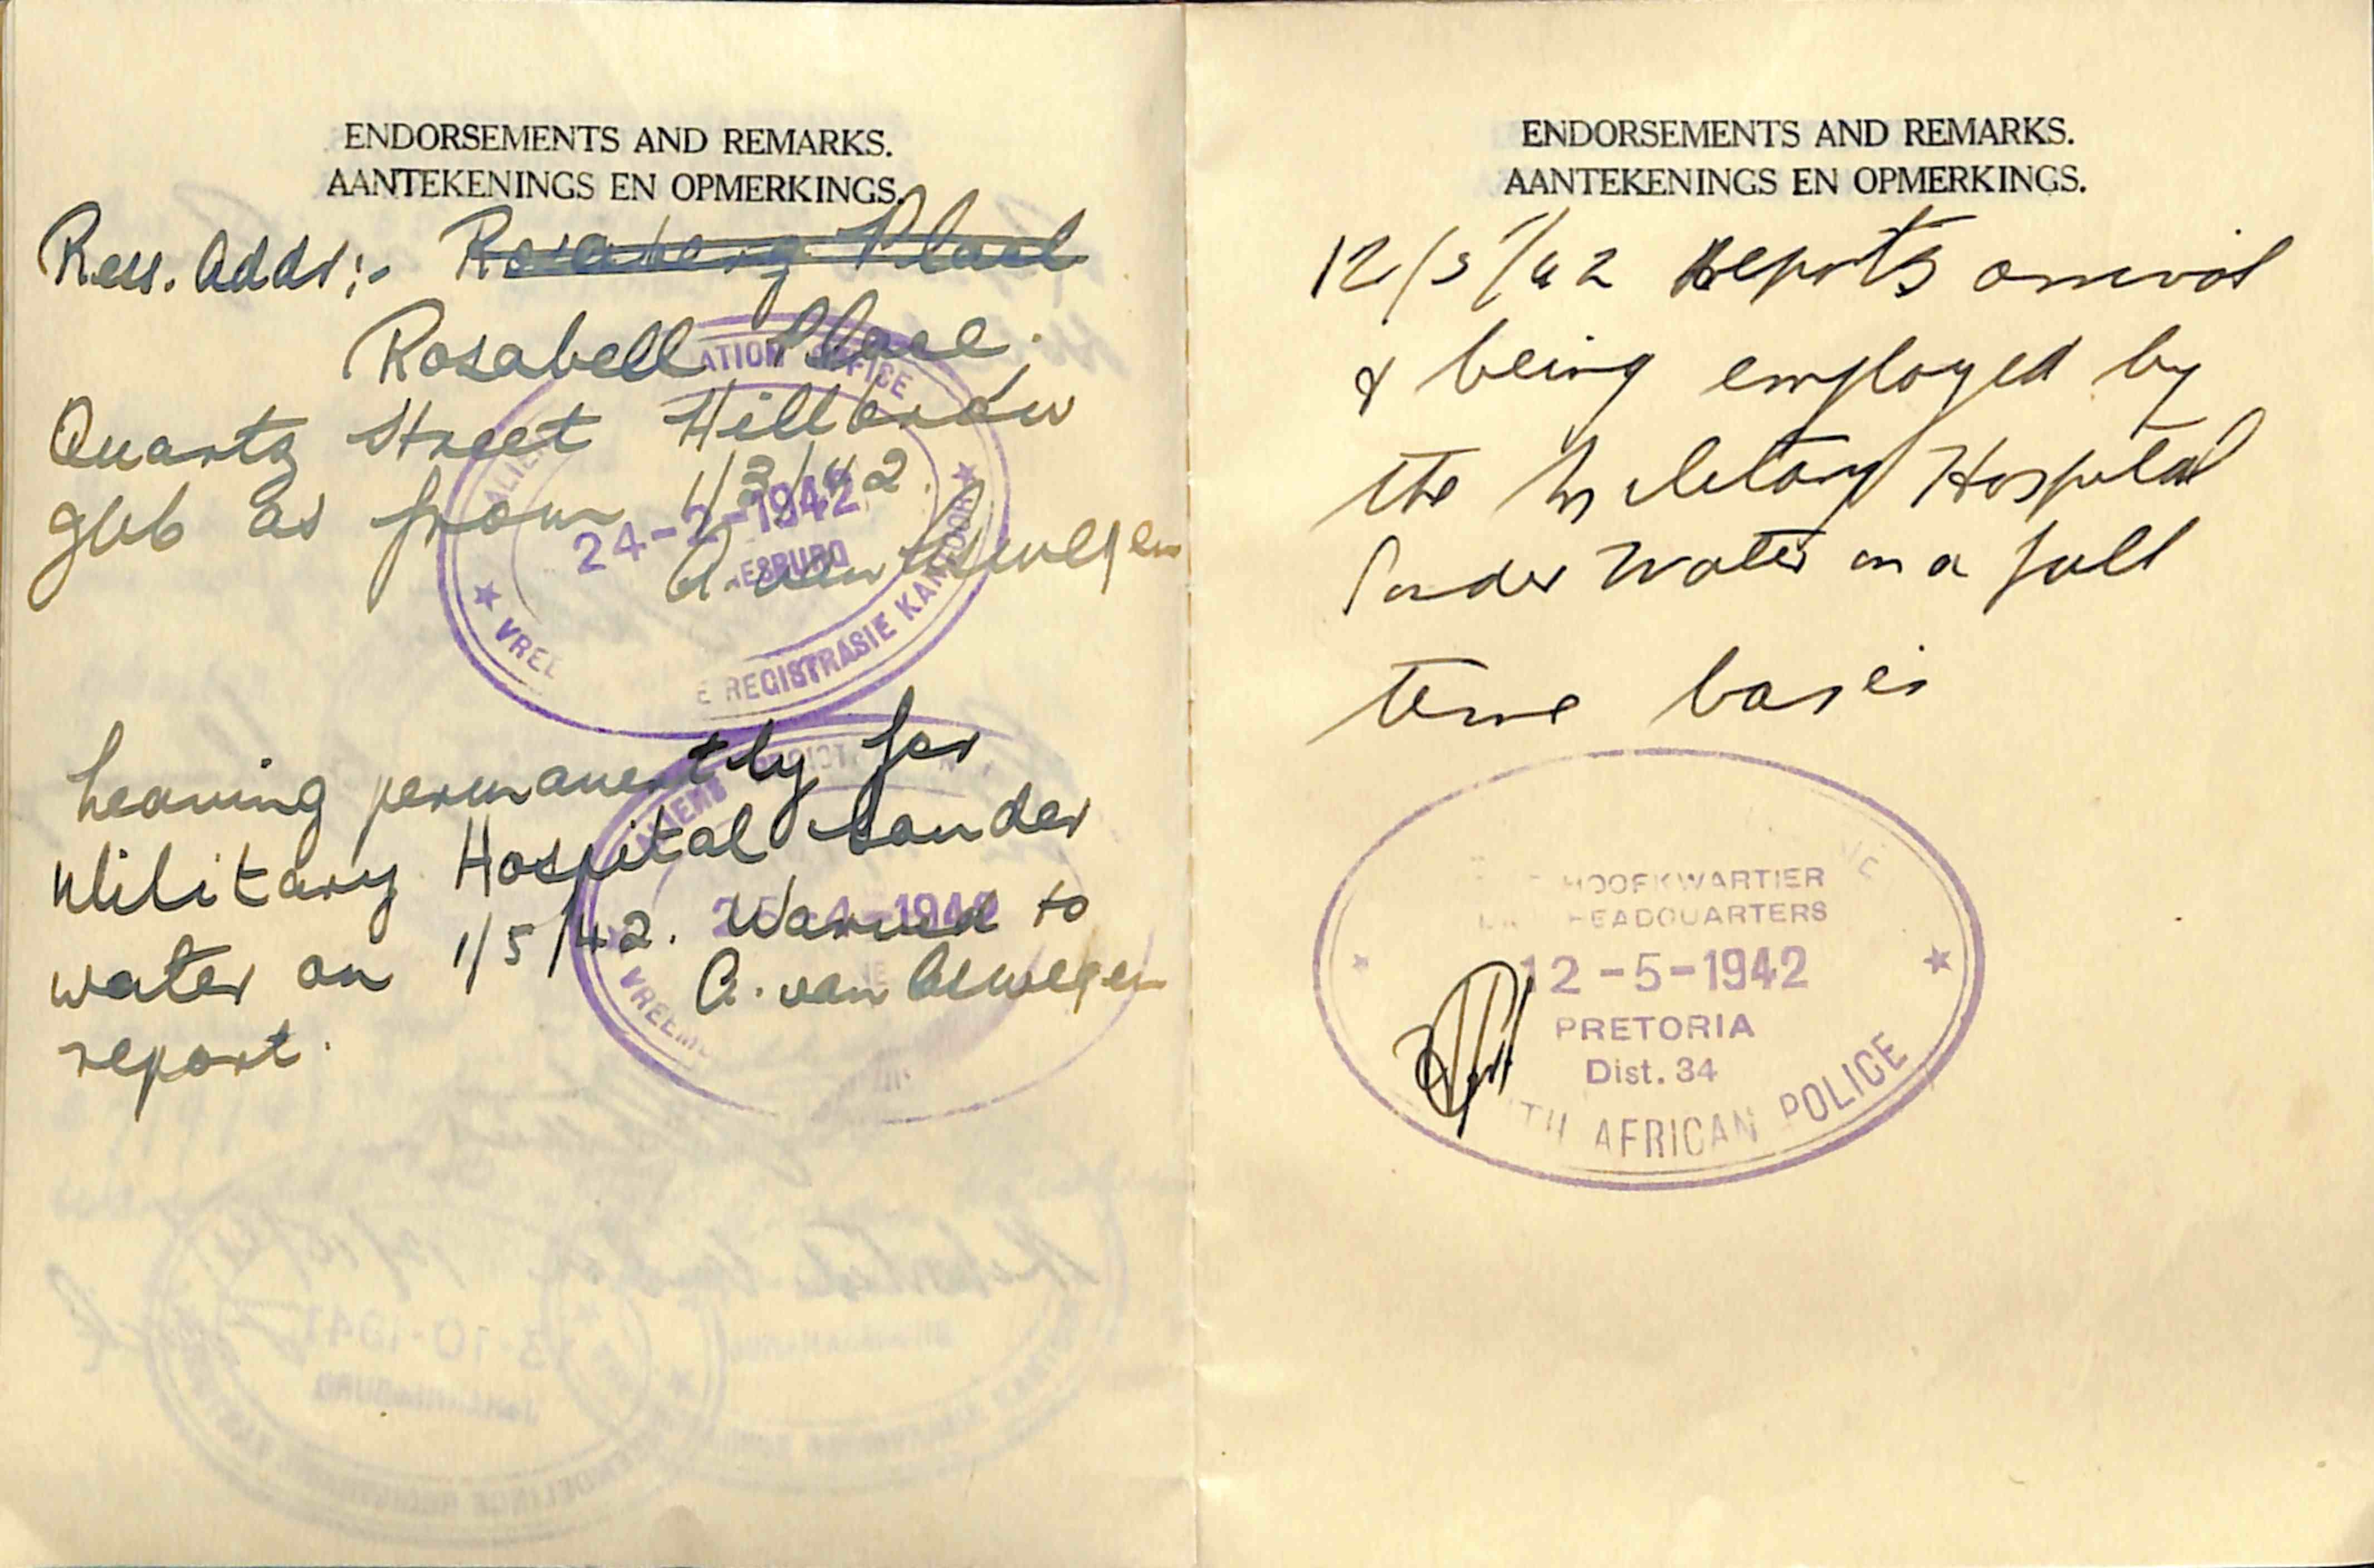 ENDORSEMENTS AND REMARKS.
AANTEKENINGS EN OPMERKINGS.
Ress. Addr:-
Rosabell Place.
Quartz Street Hillbrow
Jhb as from 1/3/42.
A. van Aswegen
ATION OFFICE
ALIE
24-2-1942
ESBURG
VREE
E REGISTRASIE KANTOOR
Leaving permanently for
Military Hospital Sonder
water on 1/5/42. Warned to
A. van Aswegen
report.
-1942
VREEM
ENDORSEMENTS AND REMARKS.
AANTEKENINGS EN OPMERKINGS.
12/5/42 Reports arrival
& being employed by
the Military Hospital
Sonder Water on a full
time basis
HOOFKWARTIER
HEADQUARTERS
12-5-1942
PRETORIA
Dist. 34
TH AFRICAN POLICE